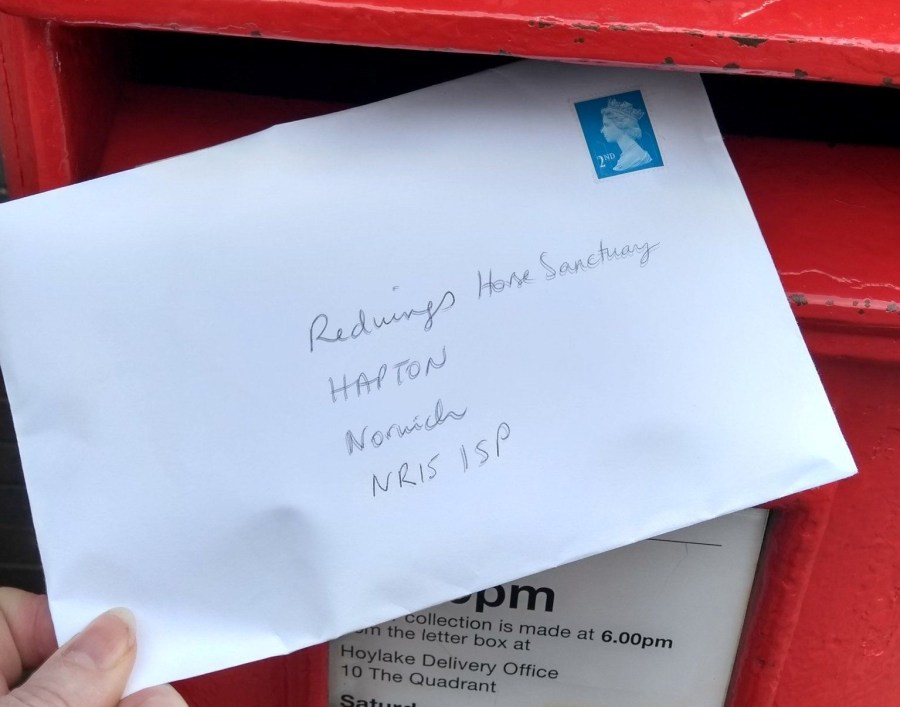 2ND
Redwings Horse Sanctuary
HAPTON
Norwich
NR15 1SP
pm
collection is made at 6.00pm
the letter box at
Hoylake Delivery Office
10 The Quadrant